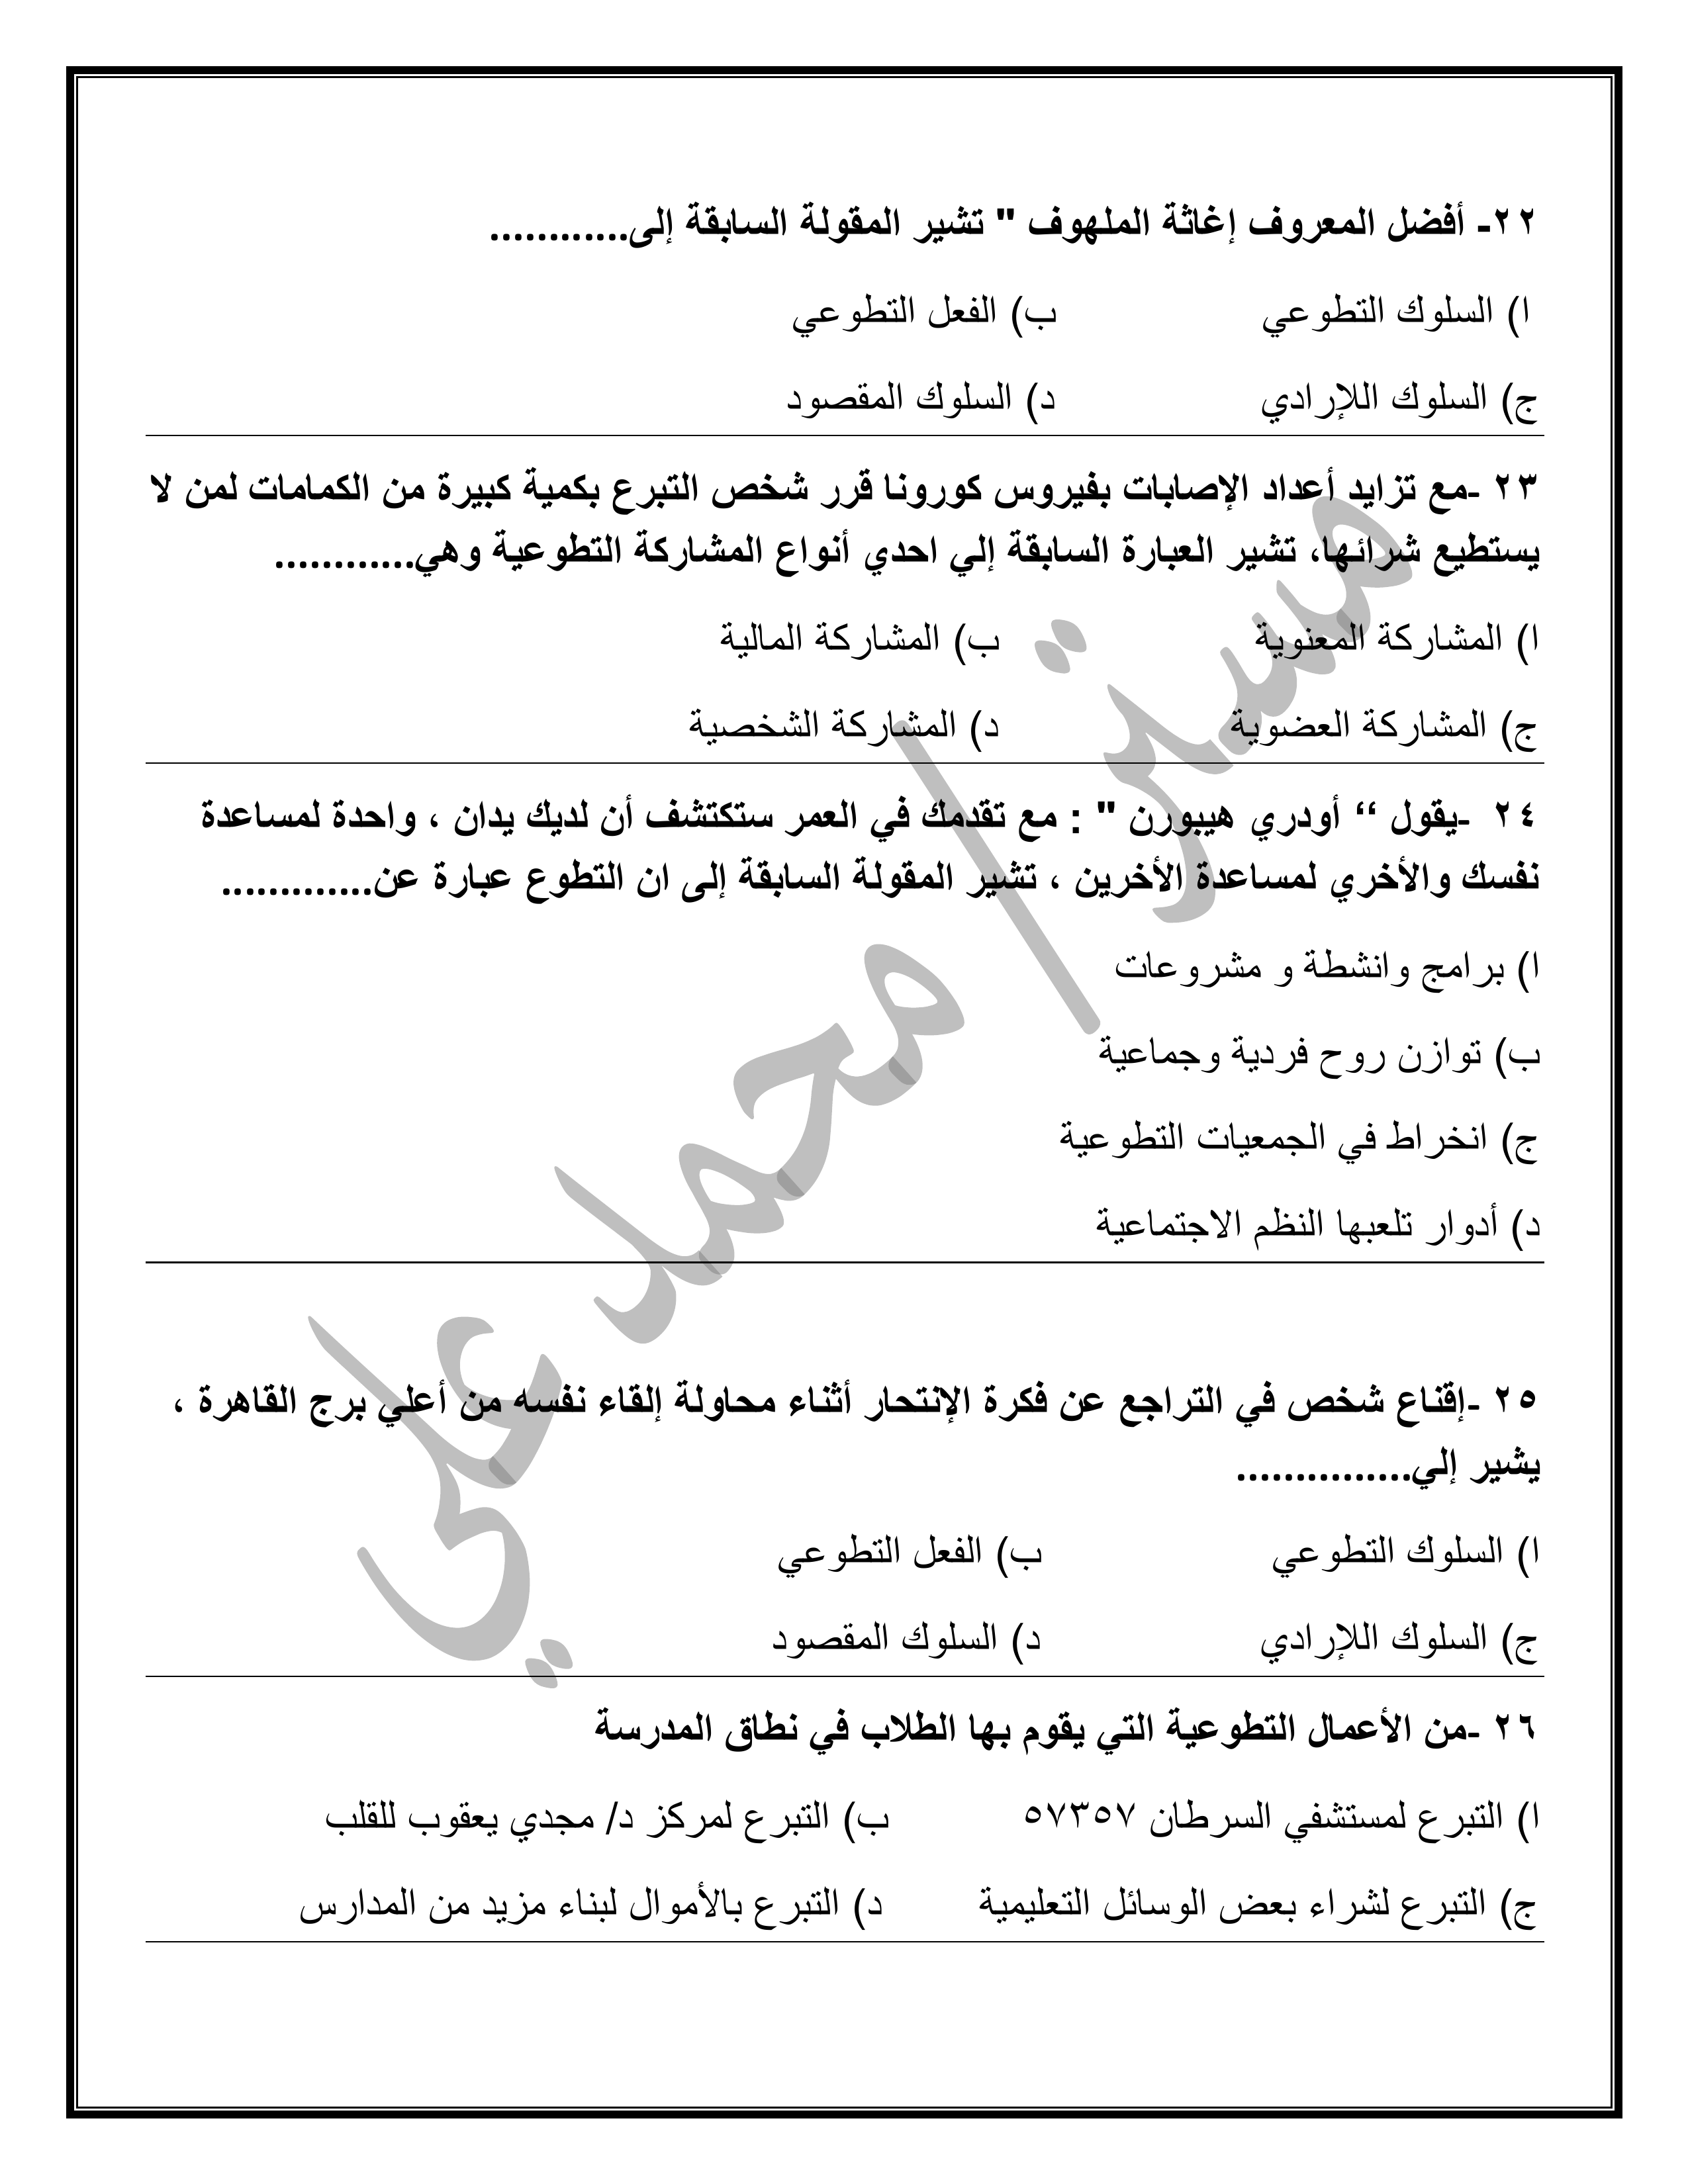 ٢٢- أفضل المعروف إغاثة الملهوف " تشير المقولة السابقة إلى............
ا) السلوك التطوعي ب) الفعل التطوعي
ج) السلوك اللإرادي د) السلوك المقصود
٢٣ -مع تزايد أعداد الإصابات بفيروس كورونا قرر شخص التبرع بكمية كبيرة من الكمامات لمن لا
يستطيع شرائها، تشير العبارة السابقة إلي احدي أنواع المشاركة التطوعية وهي............
ا) المشاركة المعنوية ب) المشاركة المالية
ج) المشاركة العضوية د) المشاركة الشخصية
٢٤ -يقول “ أودري هيبورن " : مع تقدمك في العمر ستكتشف أن لديك يدان ، واحدة لمساعدة
نفسك والأخري لمساعدة الأخرين ، تشير المقولة السابقة إلى ان التطوع عبارة عن.............
ا) برامج وانشطة و مشروعات
ب) توازن روح فردية وجماعية
ج) انخراط في الجمعيات التطوعية
د) أدوار تلعبها النظم الاجتماعية
٢٥ -إقناع شخص في التراجع عن فكرة الإنتحار أثناء محاولة إلقاء نفسه من أعلي برج القاهرة ،
يشير إلي...............
ا) السلوك التطوعي ب) الفعل التطوعي
ج) السلوك اللإرادي د) السلوك المقصود
٢٦ -من الأعمال التطوعية التي يقوم بها الطلاب في نطاق المدرسة
ا) التبرع لمستشفي السرطان ٥٧٣٥٧ ب) التبرع لمركز د/ مجدي يعقوب للقلب
ج) التبرع لشراء بعض الوسائل التعليمية د) التبرع بالأموال لبناء مزيد من المدارس
مستر/ محمد علي